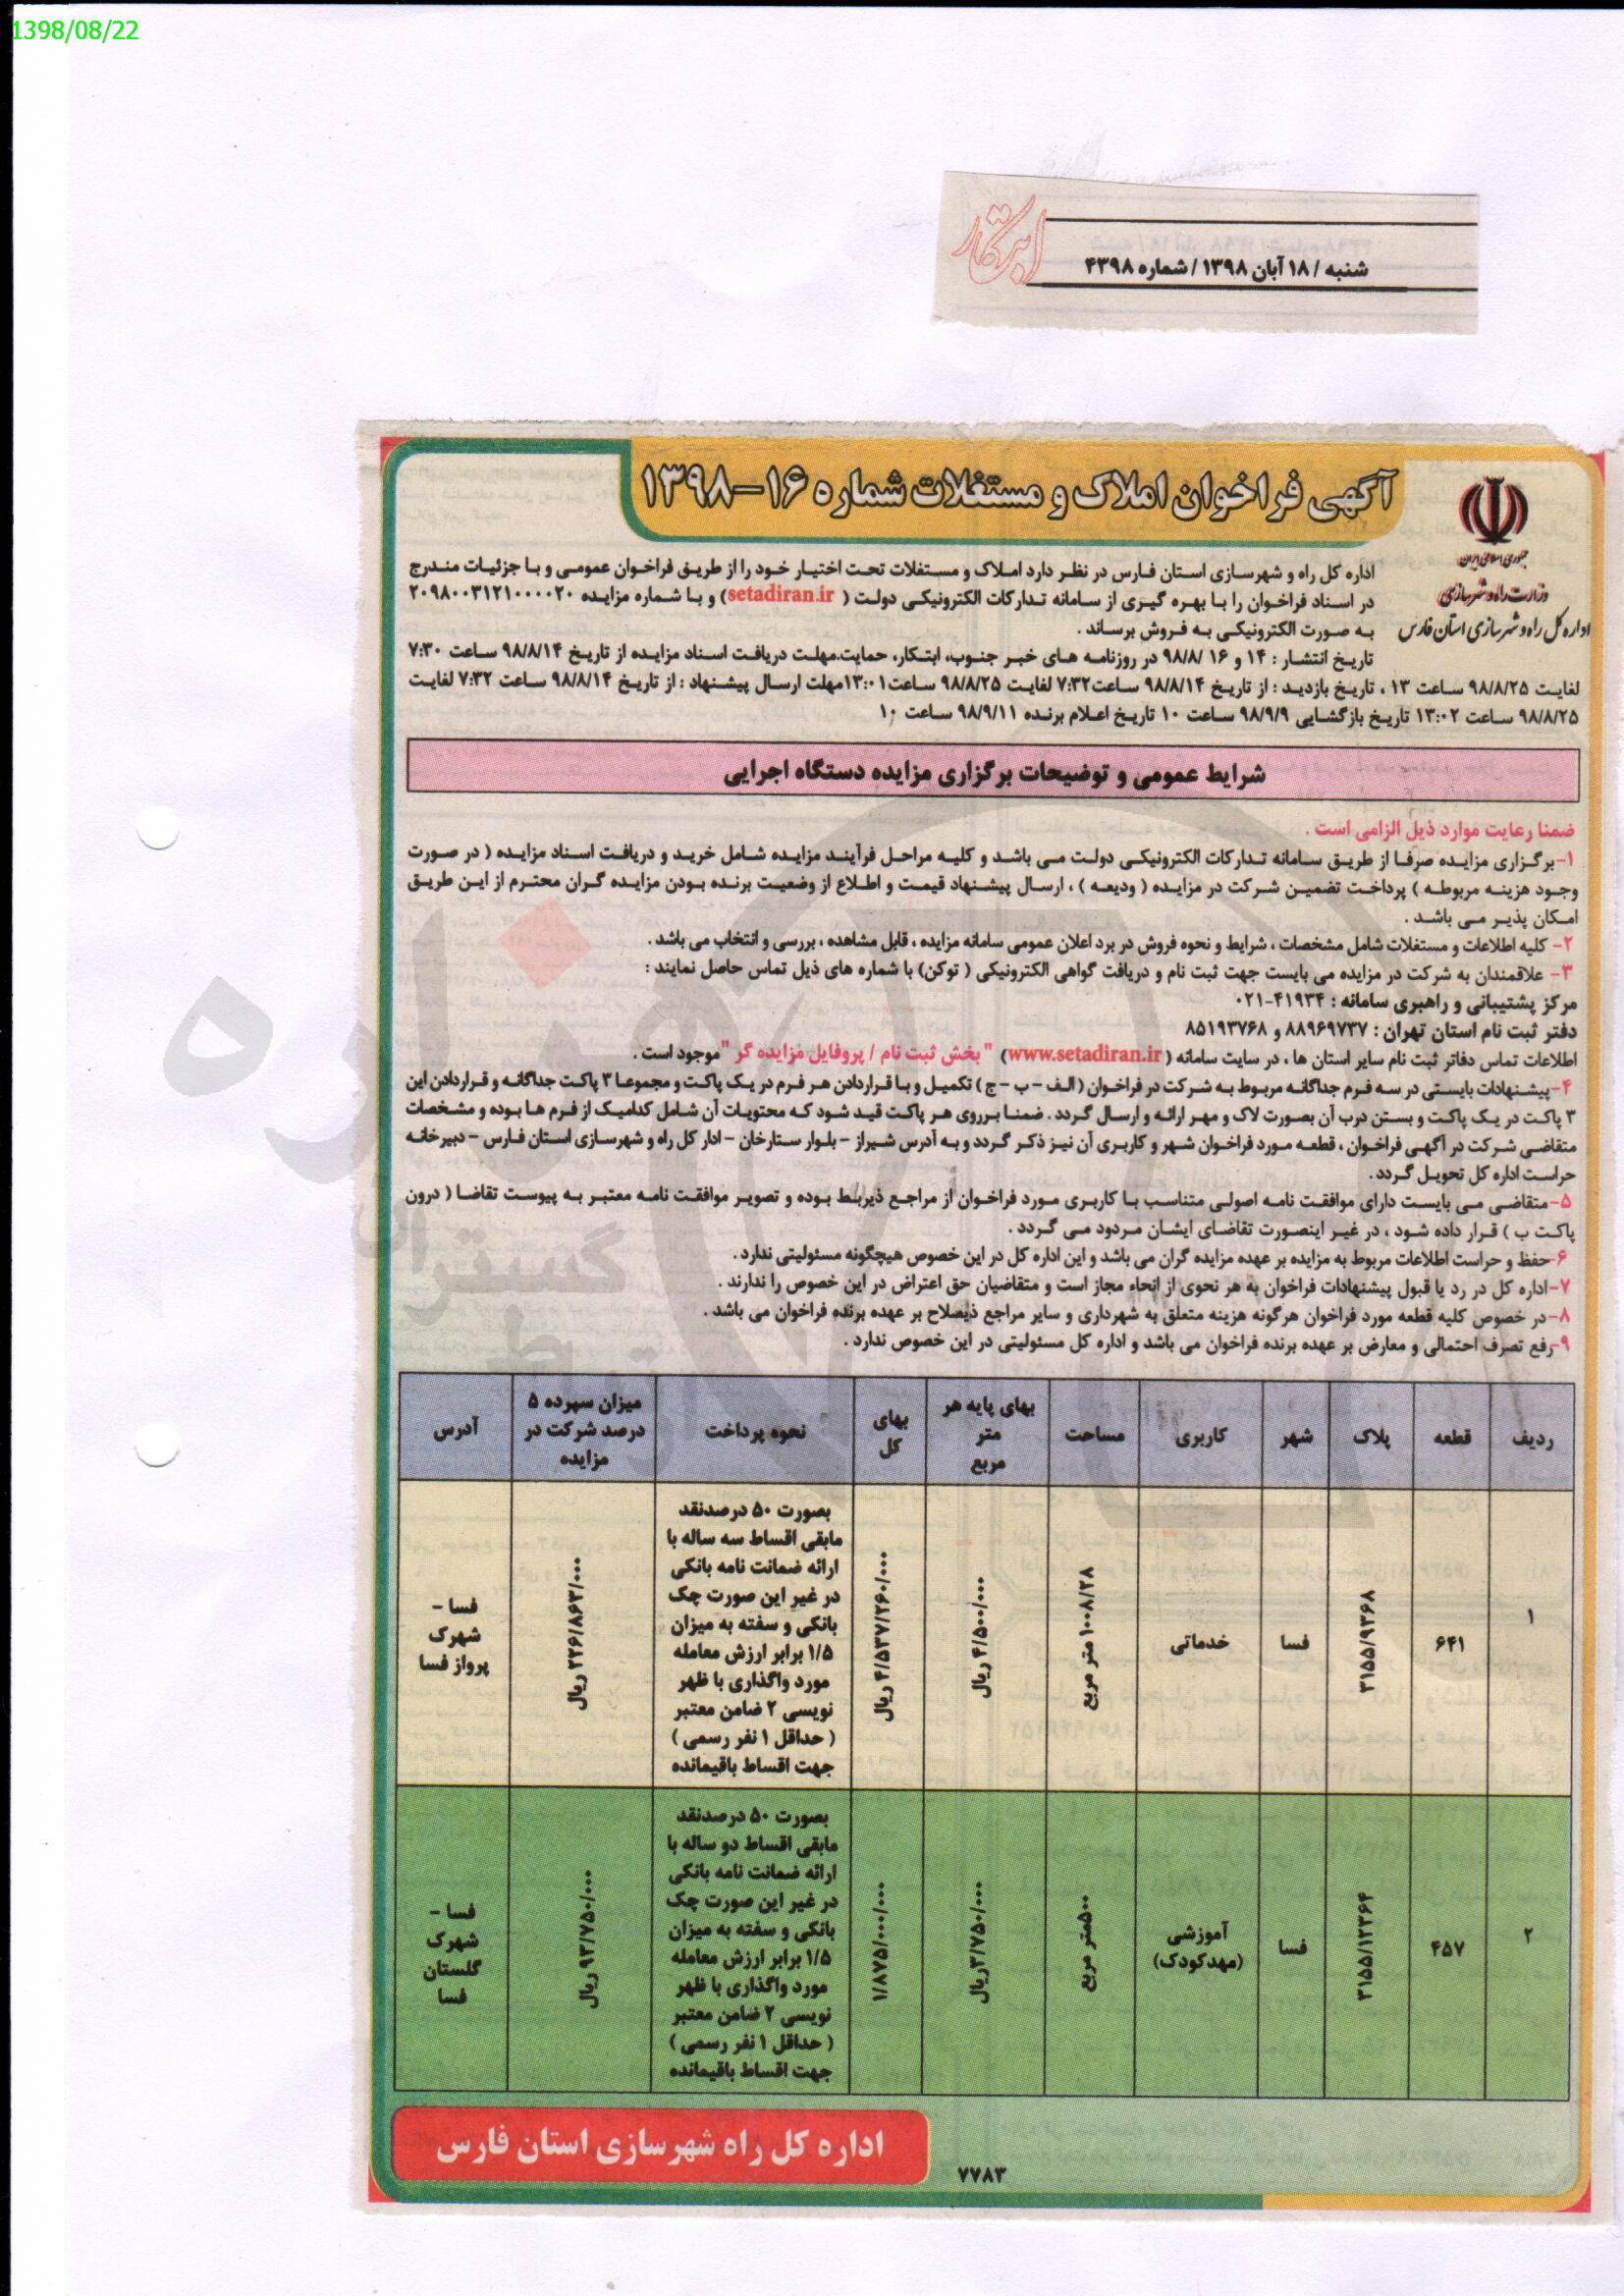 1398/08/22
ابتکار
شنبه / ۱۸ آبان ۱۳۹۸ / شماره ۴۳۹۸
آگهی فراخوان املاک و مستغلات شماره ۱۶-۱۳۹۸
جمهوری اسلامی ایران
وزارت راه و شهرسازی
اداره کل راه و شهرسازی استان فارس
اداره کل راه و شهرسازی استان فارس در نظر دارد املاک و مستغلات تحت اختیار خود را از طریق فراخوان عمومی و با جزئیات مندرج
در اسناد فراخوان را با بهره گیری از سامانه تدارکات الکترونیکی دولت ( setadiran.ir) و با شماره مزایده ۲۰۹۸۰۰۳۱۲۱۰۰۰۰۲۰
به صورت الکترونیکی به فروش برساند .
تاریخ انتشار : ۱۴ و ۱۶ /۹۸/۸ در روزنامه های خبر جنوب، ابتکار، حمایت.مهلت دریافت اسناد مزایده از تاریخ ۹۸/۸/۱۴ ساعت ۷:۳۰
لغایت ۹۸/۸/۲۵ ساعت ۱۳ ، تاریخ بازدید : از تاریخ ۹۸/۸/۱۴ ساعت۷:۳۲ لغایت ۹۸/۸/۲۵ ساعت۱۳:۰۱مهلت ارسال پیشنهاد : از تاریخ ۹۸/۸/۱۴ ساعت ۷:۳۲ لغایت
۹۸/۸/۲۵ ساعت ۱۳:۰۲ تاریخ بازگشایی ۹۸/۹/۹ ساعت ۱۰ تاریخ اعلام برنده ۹۸/۹/۱۱ ساعت ۱۰
شرایط عمومی و توضیحات برگزاری مزایده دستگاه اجرایی
ضمنا رعایت موارد ذیل الزامی است .
۱-برگزاری مزایده صرفا از طریق سامانه تدارکات الکترونیکی دولت می باشد و کلیه مراحل فرآیند مزایده شامل خرید و دریافت اسناد مزایده ( در صورت
وجود هزینه مربوطه ) پرداخت تضمین شرکت در مزایده ( ودیعه ) ، ارسال پیشنهاد قیمت و اطلاع از وضعیت برنده بودن مزایده گران محترم از این طریق
امکان پذیر می باشد .
۲- کلیه اطلاعات و مستغلات شامل مشخصات ، شرایط و نحوه فروش در برد اعلان عمومی سامانه مزایده ، قابل مشاهده ، بررسی و انتخاب می باشد .
۳- علاقمندان به شرکت در مزایده می بایست جهت ثبت نام و دریافت گواهی الکترونیکی ( توکن) با شماره های ذیل تماس حاصل نمایند :
مرکز پشتیبانی و راهبری سامانه : ۴۱۹۳۴-۰۲۱
دفتر ثبت نام استان تهران : ۸۸۹۶۹۷۳۷ و ۸۵۱۹۳۷۶۸
اطلاعات تماس دفاتر ثبت نام سایر استان ها ، در سایت سامانه (www.setadiran.ir) "بخش ثبت نام / پروفایل مزایده گر "موجود است .
۴-پیشنهادات بایستی در سه فرم جداگانه مربوط به شرکت در فراخوان ( الف - ب - ج ) تکمیل و با قراردادن هر فرم در یک پاکت و مجموعا ۳ پاکت جداگانه و قراردادن این
۳ پاکت در یک پاکت و بستن درب آن بصورت لاک و مهر ارائه و ارسال گردد . ضمنا برروی هر پاکت قید شود که محتویات آن شامل کدامیک از فرم ها بوده و مشخصات
متقاضی شرکت در آگهی فراخوان ، قطعه مورد فراخوان شهر و کاربری آن نیز ذکر گردد و به آدرس شیراز - بلوار ستارخان - ادار کل راه و شهرسازی استان فارس - دبیرخانه
حراست اداره کل تحویل گردد .
۵-متقاضی می بایست دارای موافقت نامه اصولی متناسب با کاربری مورد فراخوان از مراجع ذیربط بوده و تصویر موافقت نامه معتبر به پیوست تقاضا ( درون
پاکت ب ) قرار داده شود ، در غیر اینصورت تقاضای ایشان مردود می گردد .
۶-حفظ و حراست اطلاعات مربوط به مزایده بر عهده مزایده گران می باشد و این اداره کل در این خصوص هیچگونه مسئولیتی ندارد.
۷-اداره کل در رد یا قبول پیشنهادات فراخوان به هر نحوی از انحاء مجاز است و متقاضیان حق اعتراض در این خصوص را ندارند .
۸-در خصوص کلیه قطعه مورد فراخوان هرگونه هزینه متعلق به شهرداری و سایر مراجع ذیصلاح بر عهده برنده فراخوان می باشد .
۹-رفع تصرف احتمالی و معارض بر عهده برنده فراخوان می باشد و اداره کل مسئولیتی در این خصوص ندارد .
ردیف
قطعه
پلاک
شهر
کاربری
مساحت
بهای پایه هر
متر
مربع
بهای
کل
نحوه پرداخت
میزان سپرده ۵
درصد شرکت در
مزایده
آدرس
۱
۶۴۱
۳۱۵۵/۹۳۶۸
فسا
خدماتی
۱۰۰۸/۲۸ متر مربع
۴/۵۰۰/۰۰۰ ریال
۴/۵۳۷/۲۶۰/۰۰۰ ریال
بصورت ۵۰ درصدنقد
مابقی اقساط سه ساله با
ارائه ضمانت نامه بانکی
در غیر این صورت چک
بانکی و سفته به میزان
۱/۵ برابر ارزش معامله
مورد واگذاری با ظهر
نویسی ۲ ضامن معتبر
( حداقل ۱ نفر رسمی )
جهت اقساط باقیمانده
۲۲۶/۸۶۳/۰۰۰ ریال
فسا -
شهرک
پرواز فسا
۲
۴۵۷
۳۱۵۵/۱۲۳۶۴
فسا
آموزشی
(مهدکودک)
۵۰۰متر مربع
۳/۷۵۰/۰۰۰ریال
۱/۸۷۵/۰۰۰/۰۰۰
بصورت ۵۰ درصدنقد
مابقی اقساط دو ساله با
ارائه ضمانت نامه بانکی
در غیر این صورت چک
بانکی و سفته به میزان
۱/۵ برابر ارزش معامله
مورد واگذاری با ظهر
نویسی ۲ ضامن معتبر
( حداقل ۱ نفر رسمی )
جهت اقساط باقیمانده
۹۳/۷۵۰/۰۰۰ ریال
فسا -
شهرک
گلستان
فسا
اداره کل راه شهرسازی استان فارس
۷۷۸۳